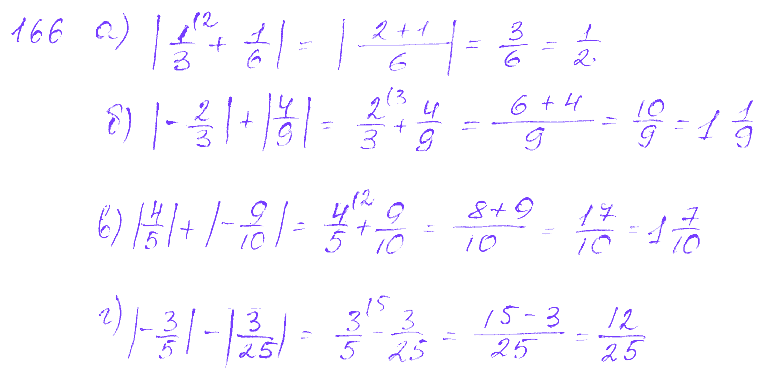 166 а) |1/3⁽² + 1/6| = |(2+1)/6| = 3/6 = 1/2.
б) |-2/3| + |4/9| = 2/3⁽³ + 4/9 = (6+4)/9 = 10/9 = 1 1/9
в) |4/5| + |-9/10| = 4/5⁽² + 9/10 = (8+9)/10 = 17/10 = 1 7/10
г) |-3/5| - |3/25| = 3/5⁽⁵ - 3/25 = (15-3)/25 = 12/25